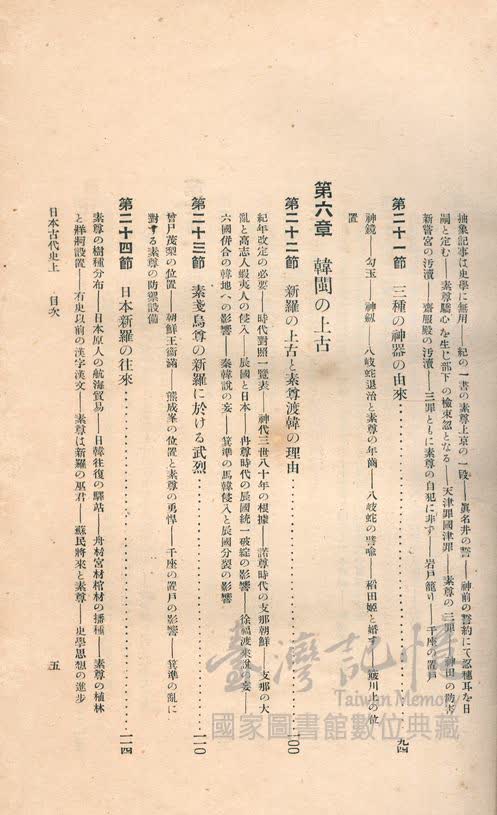 抽象記事は史學に無用——紀の一書の素尊上京の一段——眞名井の誓——神前の誓約にて忍穗耳を日
嗣と定む——素尊驕心を生じ部下の檢束忽となる——天津罪國津罪——素尊の三罪——神田の防害
新嘗宮の汚瀆——齋服殿の汚瀆——三罪ともに素尊の自犯に非ず——岩戸籠り——千座の置戸
第二十一節 三種の神器の由來……九四
神鏡——勾玉——神劔——八岐蛇退治と素尊の年齒——八岐蛇の譬喩——稻田姬と婚す——簸川上の位
置
第六章 韓閩の上古
第二十二節 新羅の上古と素尊渡韓の理由……一〇〇
紀年改定の必要——時代對照一覽表——神代三世八十年の根據——諾尊時代の支那朝鮮——支那の大
亂と高志人蝦夷人の侵入——辰國と日本——冉尊時代の辰國統一破綻の影響——徐福渡來說の妄——
六國併合の韓地への影響——秦韓說の妄——箕準の馬韓侵入と辰國分裂の影響
第二十三節 素戔烏尊の新羅に於ける武烈……一一〇
曾尸茂梨の位置——朝鮮王衞滿——熊成峯の位置と素尊の勇悍——千座の置戸の影響——箕準の亂に
對する素尊の防禦設備
第二十四節 日本新羅の往來……一一四
素尊の樹種分布——日本原人の航海貿易——日韓往復の驛站——舟材宮材棺材の播種——素尊の植林
と牂牁設置——有史以前の漢字漢文——素尊は新羅の巫君——蘇民將來と素尊——史學思想の進步
日本古代史上 目次 五
臺灣記憶
Taiwan Memory
國家圖書館數位典藏